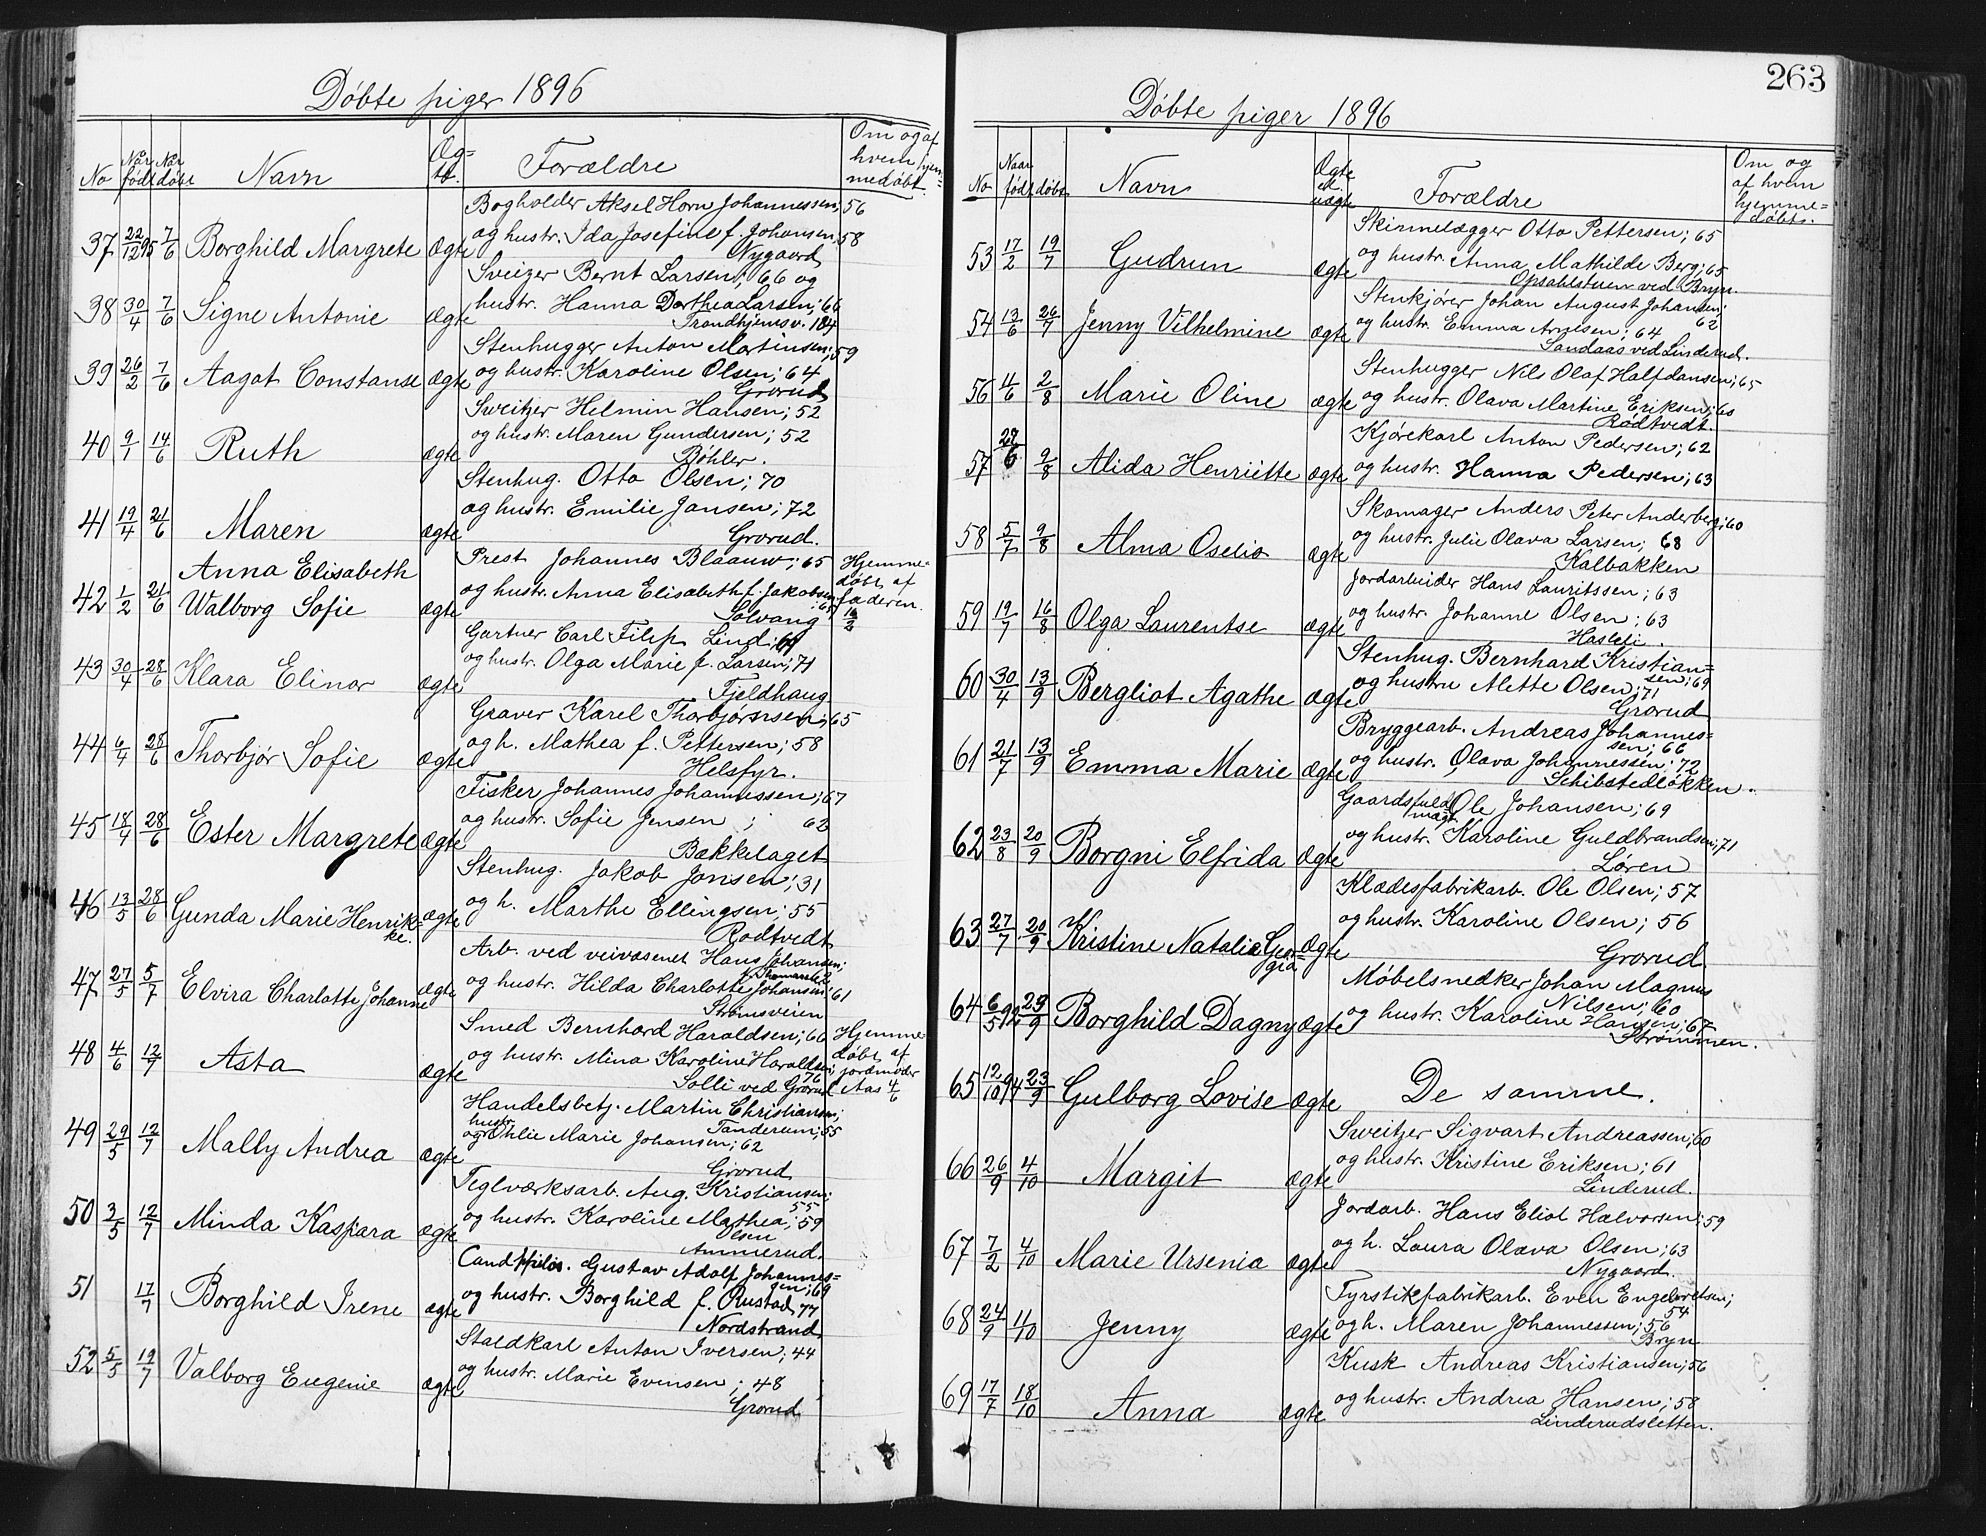 Döbte piger 1896
No Når født Når døbt Navn Æg- te. Forældre Om og af hvem hjem- medøbt.
37 22/12 95 7/6 Borghild Margrete ægte Bogholder Aksel Horn Johannessen; 56
og hustr. Ida Josefine f. Johansen; 58
Nygaard
38 30/4 7/6 Signe Antonie ægte Sveizer Bernt Larsen; 66 og
hustr. Hanna Dorthea Larsen; 66
Trondhjemsv. 104
39 26/2 7/6 Aagot Constanse ægte Stenhugger Anton Martinsen; 59
og hustr. Karoline Olsen; 64
Grorud
40 9/1 14/6 Ruth ægte Sweitzer Helmin Hansen; 52
og hustr. Maren Gundersen; 52
Bøhler.
41 19/4 21/6 Maren ægte Stenhug. Otto Olsen; 70
og hustr. Emilie Jansen; 72
Grorud.
42 1/2 21/6 Anna Elisabeth
Walborg Sofie ægte Prest Johannes Blaauw; 65
og hustr. Anna Elisabeth f. Jakobsen
Solvang
Hjemme-
døbt af
faderen.
43 30/4 28/6 Klara Elinor ægte Gartner Carl Filip Lind;
og hustr. Olga Marie f. Larsen; 71
Fjeldhaug
44 6/4 28/6 Thorbjør Sofie ægte Graver Karel Thorbjørnsen; 65
og h. Mathea f. Pettersen; 58
Helsfyr.
45 18/4 28/6 Ester Margrete ægte Fisker Johannes Johannessen; 67
og hustr. Sofie Jensen; 62
Bækkelaget
46 13/5 28/6 Gunda Marie Henrik-
ke. ægte Stenhug. Jakob Jonsen; 31
og h. Marthe Ellingsen; 55
Rødtvedt
47 27/5 5/7 Elvira Charlotte Johanne ægte Arb. ved veivæsenet Hans Johansen;
og hustr. Hilda Charlotte Johansen; 61
Strømsveien
48 4/6 12/7 Asta ægte Smed Bernhard Haraldsen; 66
og hustr. Mina Karoline Haraldsen;
76
Solli ved Grorud
Hjemme-
døbt af
jordmoder
Aas 4/6
49 29/5 12/7 Mally Andrea ægte Handelsbetj. Martin Christiansen;
Tanderum; 55
og hustr. Othlie Marie Johansen; 62
Grorud
50 3/5 12/7 Minda Kaspara ægte Teglværksarb. Aug. Kristiansen;
55
og hustr. Karoline Mathea; 59
Olsen
Ammerud.
51 17/7 Borghild Irene ægte Cand. philos. Gustav Adolf Johannes-
sen; 69
og hustr. Borghild f. Rustad, 77
Nordstrand
52 5/5 19/7 Valborg Eugenie ægte Staldkarl Anton Iversen; 44
og hustr. Marie Evensen; 48
Grorud
263
Döbte piger 1896
No Naar født døbt Navn Ægte el. uægte Forældre Om og af hvem hjemme- døbt.
53 17/2 19/7 Gudrun ægte Skinnelægger Otto Pettersen; 65
og hustr. Anna Mathilde Berg; 65
Opsahlstuen ved Bryn.
54 13/6 26/7 Jenny Vilhelmine ægte Stenkjører Johan August Johansen;
62
og hustr. Emma Arnesen; 64
Sandaas ved Linderud.
56 11/6 2/8 Marie Oline ægte Stenhugger Nils Olaf Halfdansen; 65
og hustr. Olava Martine Eriksen; 60
Rødtvedt.
57 27/6 9/8 Alida Henriette ægte Kjørekarl Anton Pedersen; 62
og hustr. Hanna Pedersen; 63
58 5/7 9/8 Alma Oselio ægte Skomager Anders Peter Anderberg; 60
og hustr. Julie Olava Larsen; 68
Kalbakken
59 19/7 16/8 Olga Laurentse ægte Jordarbeider Hans Lauritssen; 63
og hustr. Johanne Olsen; 63
Haslefi.
60 30/4 13/9 Bergliot Agathe ægte Stenhug. Bernhard Kristian-
sen; 69
og hustru Alette Olsen; 71
Grorud
61 21/7 13/9 Emma Marie ægte Bryggearb. Andreas Johannes-
sen; 66
og hustr. Olava Johannessen; 72
Schibstedløkken.
62 23/8 20/9 Borgni Elfrida ægte Gaardsfuld-
mægt. Ole Johansen; 69
og hustr. Karoline Guldbrandsen; 71
Løren
63 27/7 20/9 Kristine Natalia Geor-
gia ægte Klædesfabrikarb. Ole Olsen; 57
og hustr. Karoline Olsen; 56
Grorud.
64 6/5 92 23/9 Borghild Dagny ægte Møbelsnedker Johan Magnus
Nilsen; 60
og hustr. Karoline Hansen; 67
Strømmen.
65 12/10 94 23/9 Gulborg Lovise ægte De samme.
66 26/9 4/10 Margit ægte Sweitzer Sigvart Andreassen; 60
og hustr. Kristine Eriksen; 61
Linderud.
67 7/2 4/10 Marie Ursenia ægte Jordarb. Hans Eliot Halvorsen; 59
og h. Laura Olava Olsen; 63
Nygaard.
68 24/9 11/10 Jenny ægte Fyrstikfabrikarb. Even Engebretsen;
54
og h. Maren Johannessen; 56
Bryn
69 17/7 18/10 Anna ægte Kusk Andreas Kristiansen; 56
og hustr. Andrea Hansen; 58
Linderudsletten.